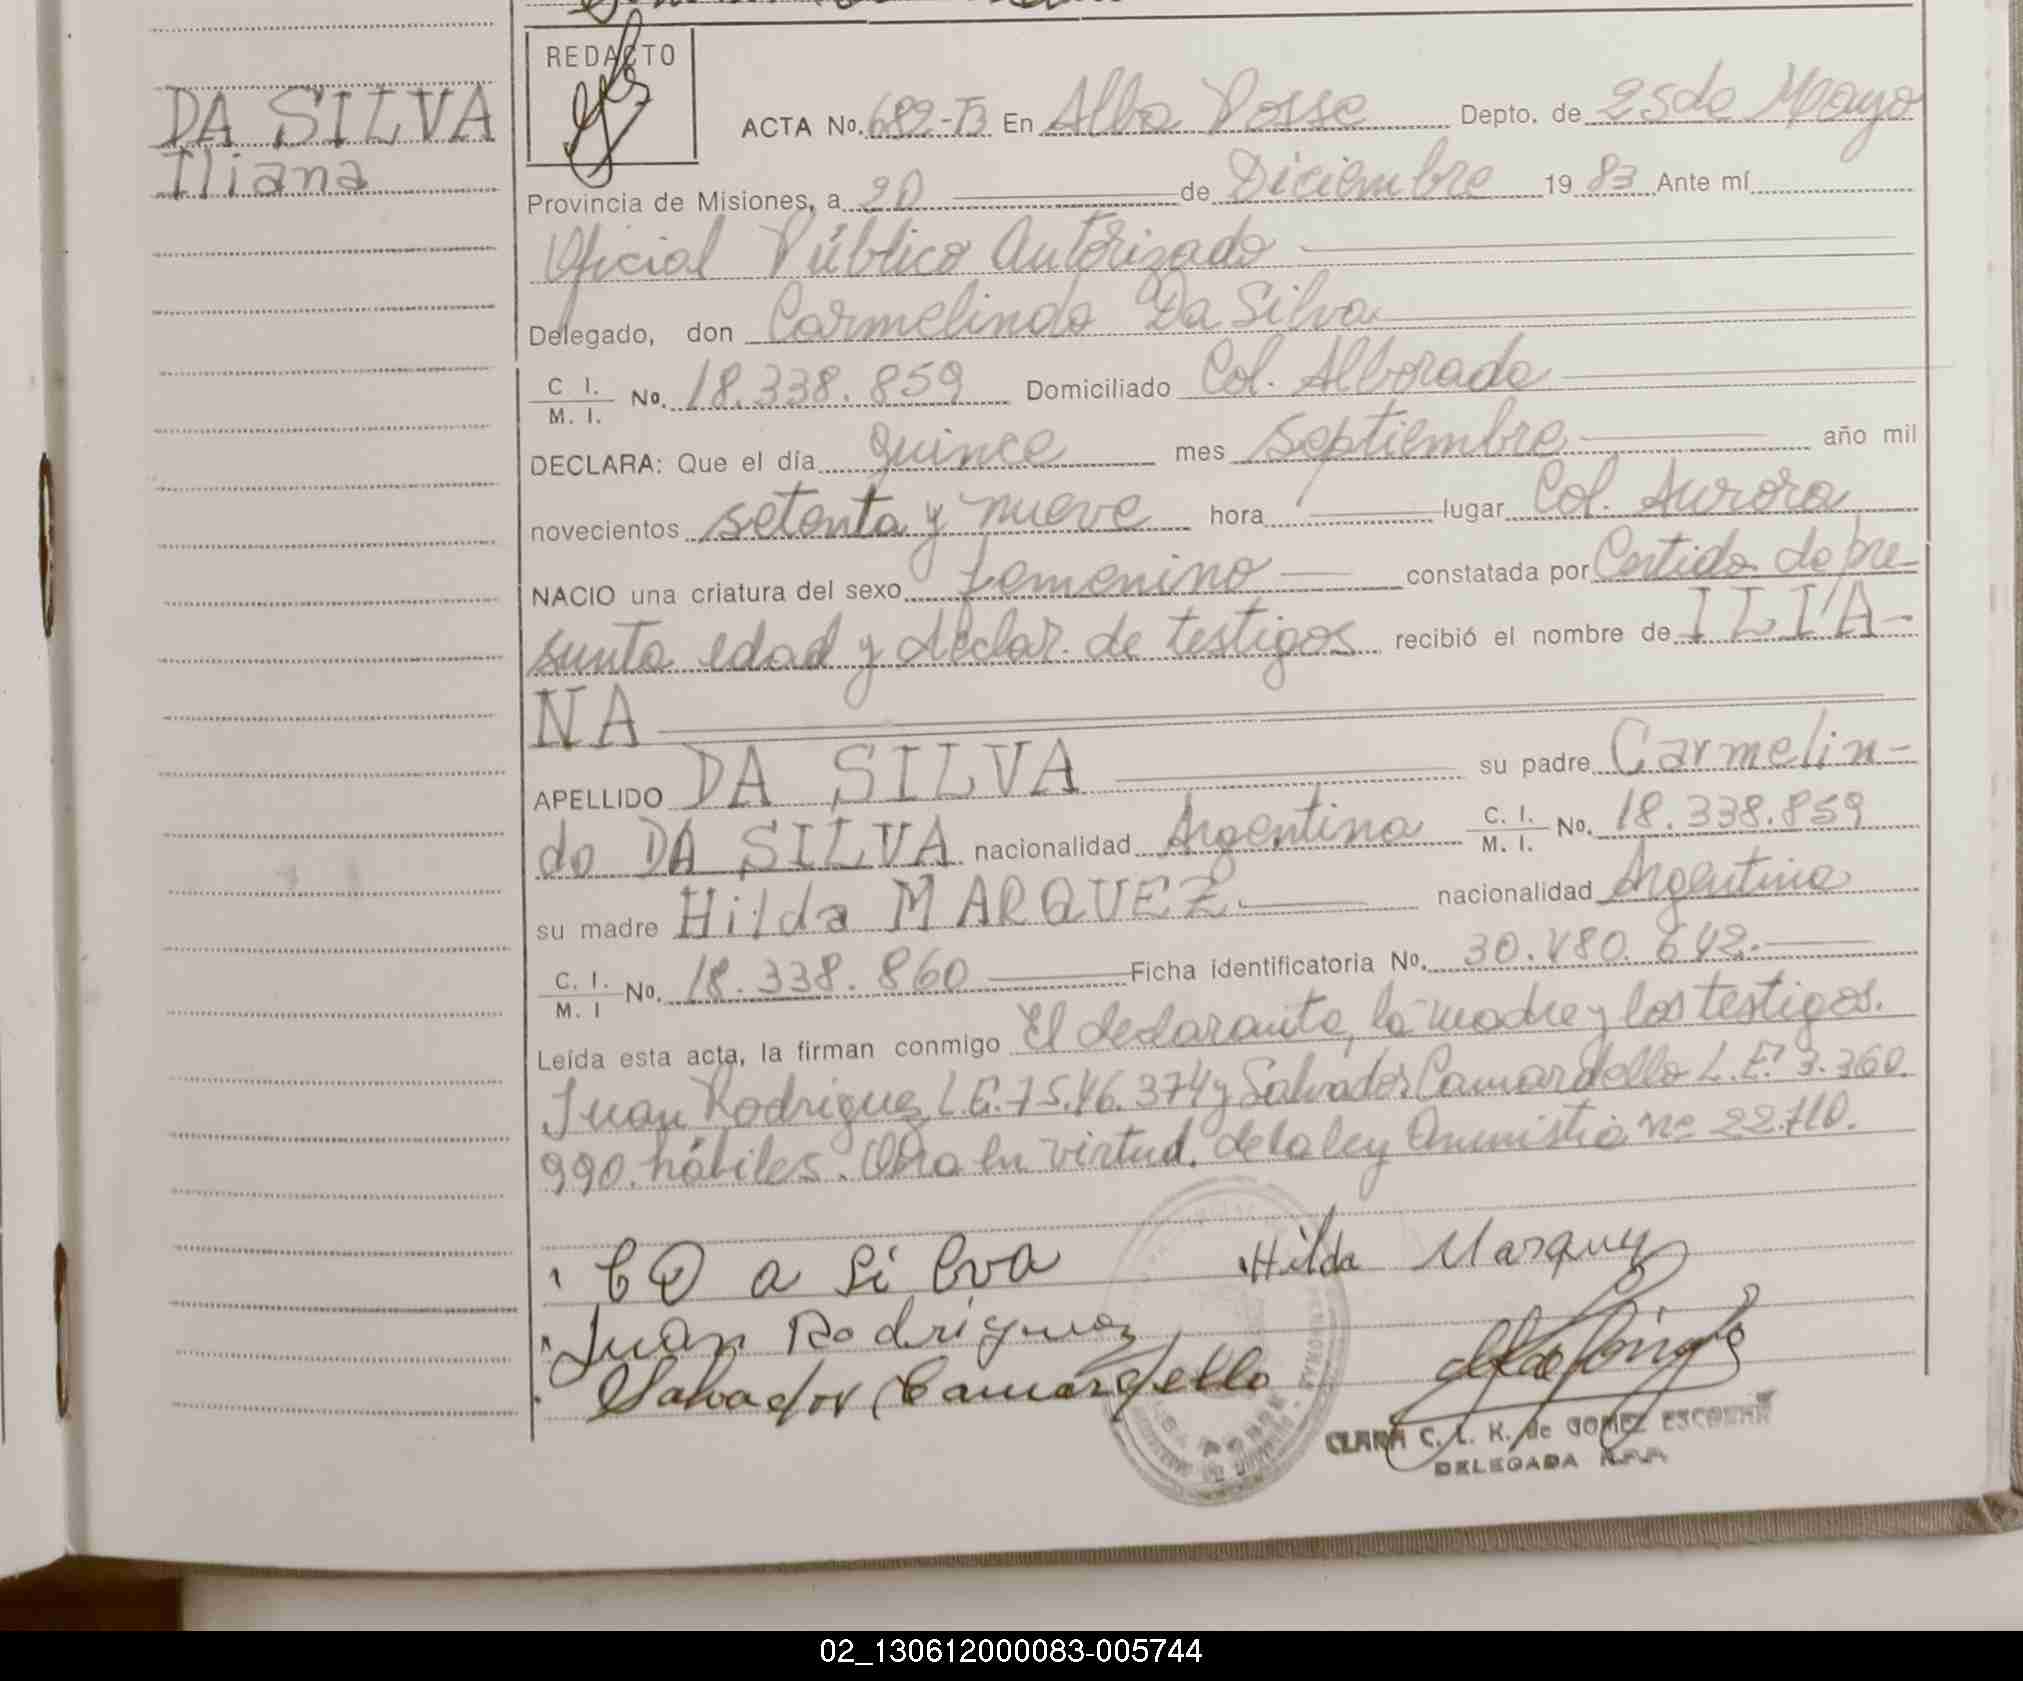 DA SILVA
Iliana
REDACTO
ACTA No. 682-B En Alba Posse Depto. de 25 de Mayo
Provincia de Misiones, a 20 de Diciembre 19 83 Ante mí
Oficial Público Autorizado
Delegado, don Carmelindo Da Silva
C I.
M. I. No. 18.338.859 Domiciliado Col. Alborada
DECLARA: Que el día quince mes septiembre año mil
novecientos setenta y nueve hora lugar Col. Aurora
NACIO una criatura del sexo femenino constatada por Certido de pre-
sunta edad y declar. de testigos recibió el nombre de ILIA-
NA
APELLIDO DA SILVA su padre Carmelin-
do DA SILVA nacionalidad Argentina C. I.
M. I. No. 18.338.859
su madre Hilda MARQUEZ nacionalidad Argentina
C. I.
M. I No. 18.338.860 Ficha identificatoria No. 30.480.642.
Leída esta acta, la firman conmigo El declarante, la madre y los testigos.
Juan Rodriguez L.E. 7.546.374 y Salvador Camardello L.E. 3.360.
990. hábiles. Obra en virtud. de la ley Amnistia nº 22.710.
C D a Si lva Hilda Marquez
Juan Rodriguez
Salvador Camardello
CLARA C. L. K. de GOMEZ ESCOBAR
DELEGADA
02_130612000083-005744